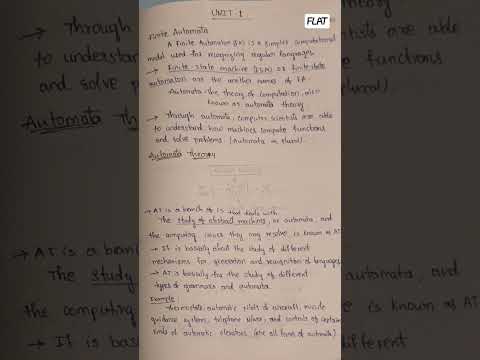 UNIT-1
FLAT
Finite Automata
A Finite Automaton (FA) is a simplex computational
model used for recognizing regular languages.
→ Finite state machine (FSM) or finite-state
automaton are the another names of FA.
Automata: The theory of computation, also
known as automata theory
→ Through automata, computer scientists are able
to understand how machines compute functions
and solve problems. (Automata is plural).
Automata Theory
→ AT is a branch of CS that deals with
The study of abstract machines, or automata, and
the computing issues they may resolve, is known as AT
→ It is basically about the study of different
mechanisms for generation and recognition of languages
→ AT is basically for the study of different
types of grammars and automata.
Example
Thermostats, automatic pilots of aircraft, missile
guidance systems, telephone and controls of certain
kinds of automatic elevators. (are all forms of automata)
→ Through
to understand
and solve p
Automata Th
are able
functions
plural).
→ AT is a branch
The study
the computing
→ It is basi
automata, and
is known as AT
different